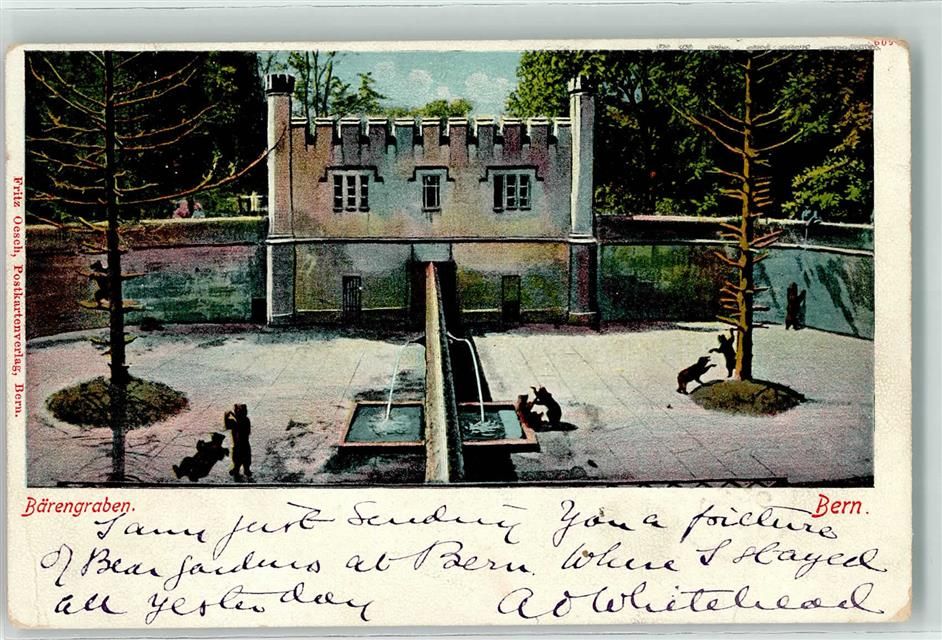 609
Fritz Oesch, Postkartenverlag, Bern.
Bärengraben.
Bern.
I am just Sending You a picture
of Bear gardens at Bern. Where I stayed
all yesterday A O Whitehead